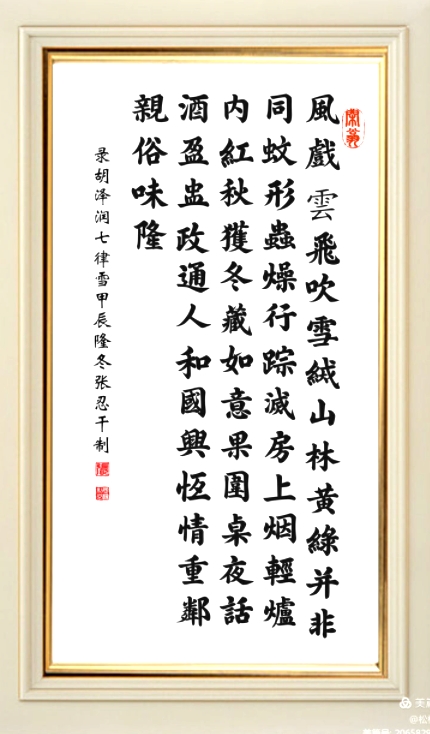 風戲雲飛吹雪绒山林黃綠并非
同蚊形蟲燥行踪滅房上烟輕爐
內紅秋獲冬藏如意果圍桌夜話
酒盈盅政通人和國興恆情重鄰
親俗味隆
录胡泽润七律雪甲辰隆冬张忍干制